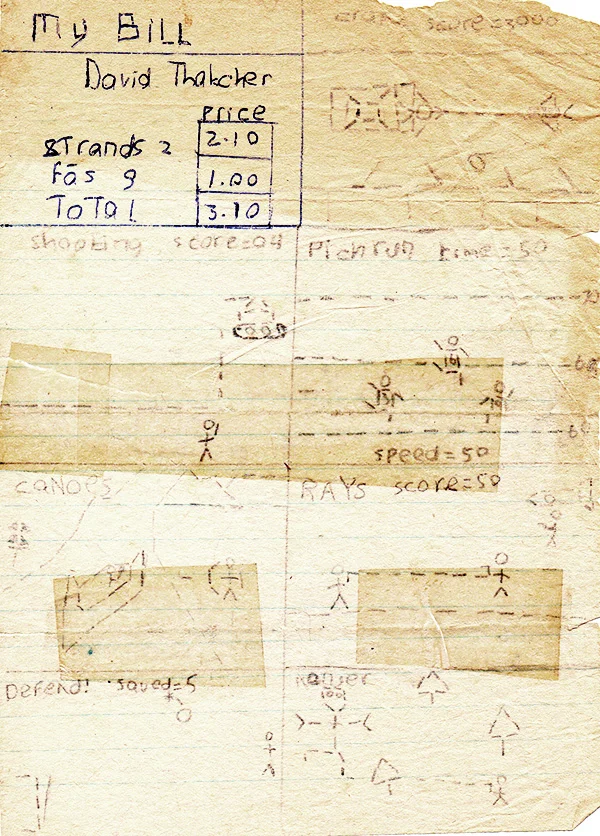 My BILL
score=3000
David Thakcher
Price
STrands 2 2.10
Fas 9 1.00
ToTal 3.10
score=04
Pichrun time=50
speed=50
CANOES
RAYs score=50
Defend! saved=5